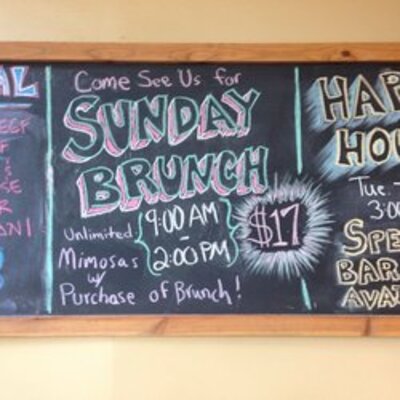 AL
EEF
F
SE
R
ON!
Come See Us for
SUNDAY
BRUNCH
Unlimited
Mimosas
w/
Purchase of Brunch!
9:00 AM
-
2:00 PM
$17
HAP
HOU
Tue.-
3:00
SPE
BAR
AVA